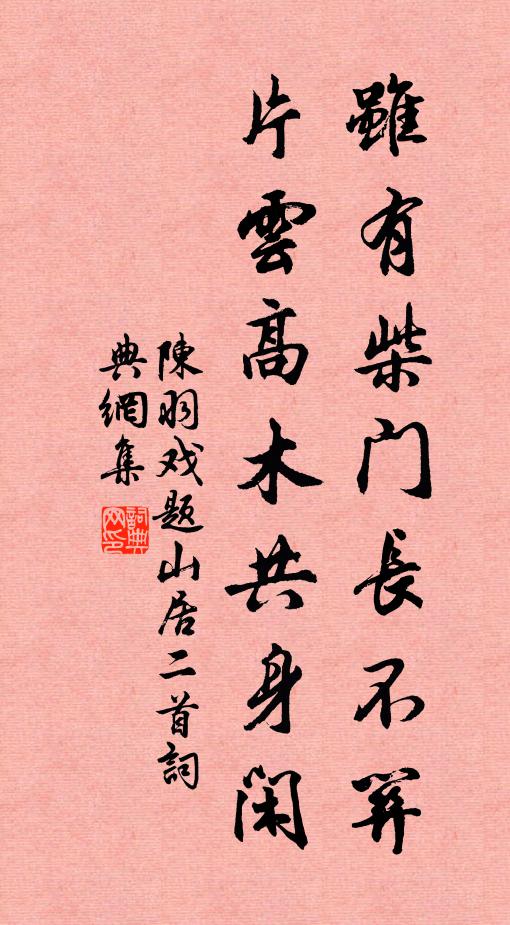 雖有柴門長不關
片雲高木共身閑
陳羽戏题山居二首詞
典網集
詞典網印